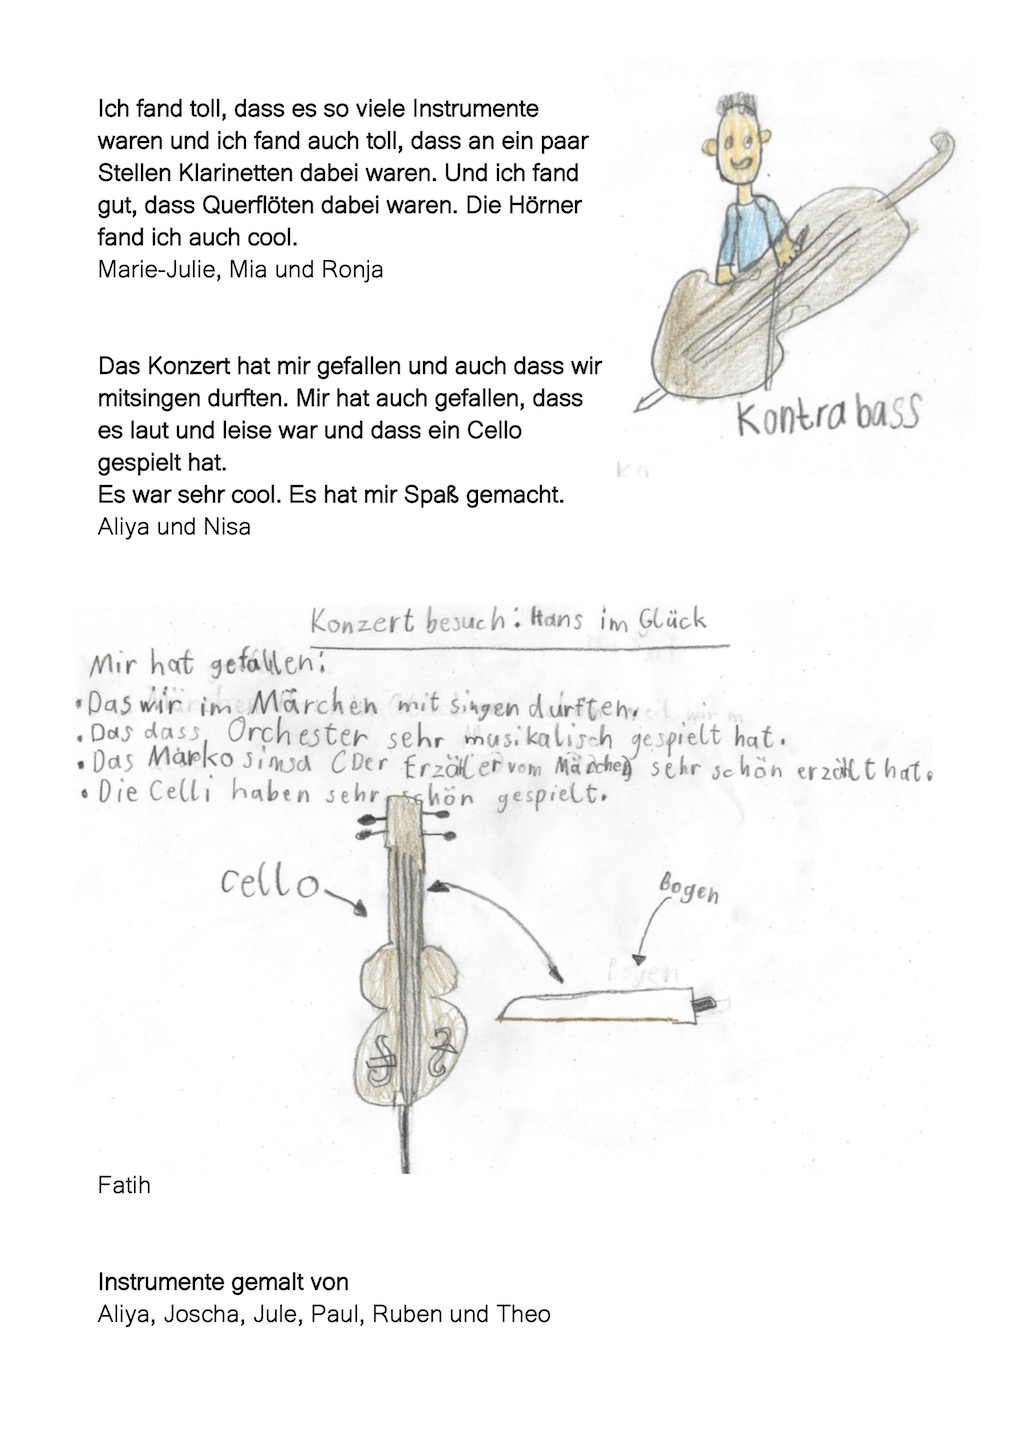 Ich fand toll, dass es so viele Instrumente
waren und ich fand auch toll, dass an ein paar
Stellen Klarinetten dabei waren. Und ich fand
gut, dass Querflöten dabei waren. Die Hörner
fand ich auch cool.
Marie-Julie, Mia und Ronja
Das Konzert hat mir gefallen und auch dass wir
mitsingen durften. Mir hat auch gefallen, dass
es laut und leise war und dass ein Cello
gespielt hat.
Es war sehr cool. Es hat mir Spaß gemacht.
Aliya und Nisa
Kontrabass
Konzert besuch: Hans im Glück
Mir hat gefallen:
• Das wir im Märchen mit singen durften.
• Das dass Orchester sehr musikalisch gespielt hat.
• Das Marko simsa (Der Erzähler vom Märchen) sehr schön erzählt hat.
• Die Celli haben sehr schön gespielt.
Cello
Bogen
Bogen
Fatih
Instrumente gemalt von
Aliya, Joscha, Jule, Paul, Ruben und Theo